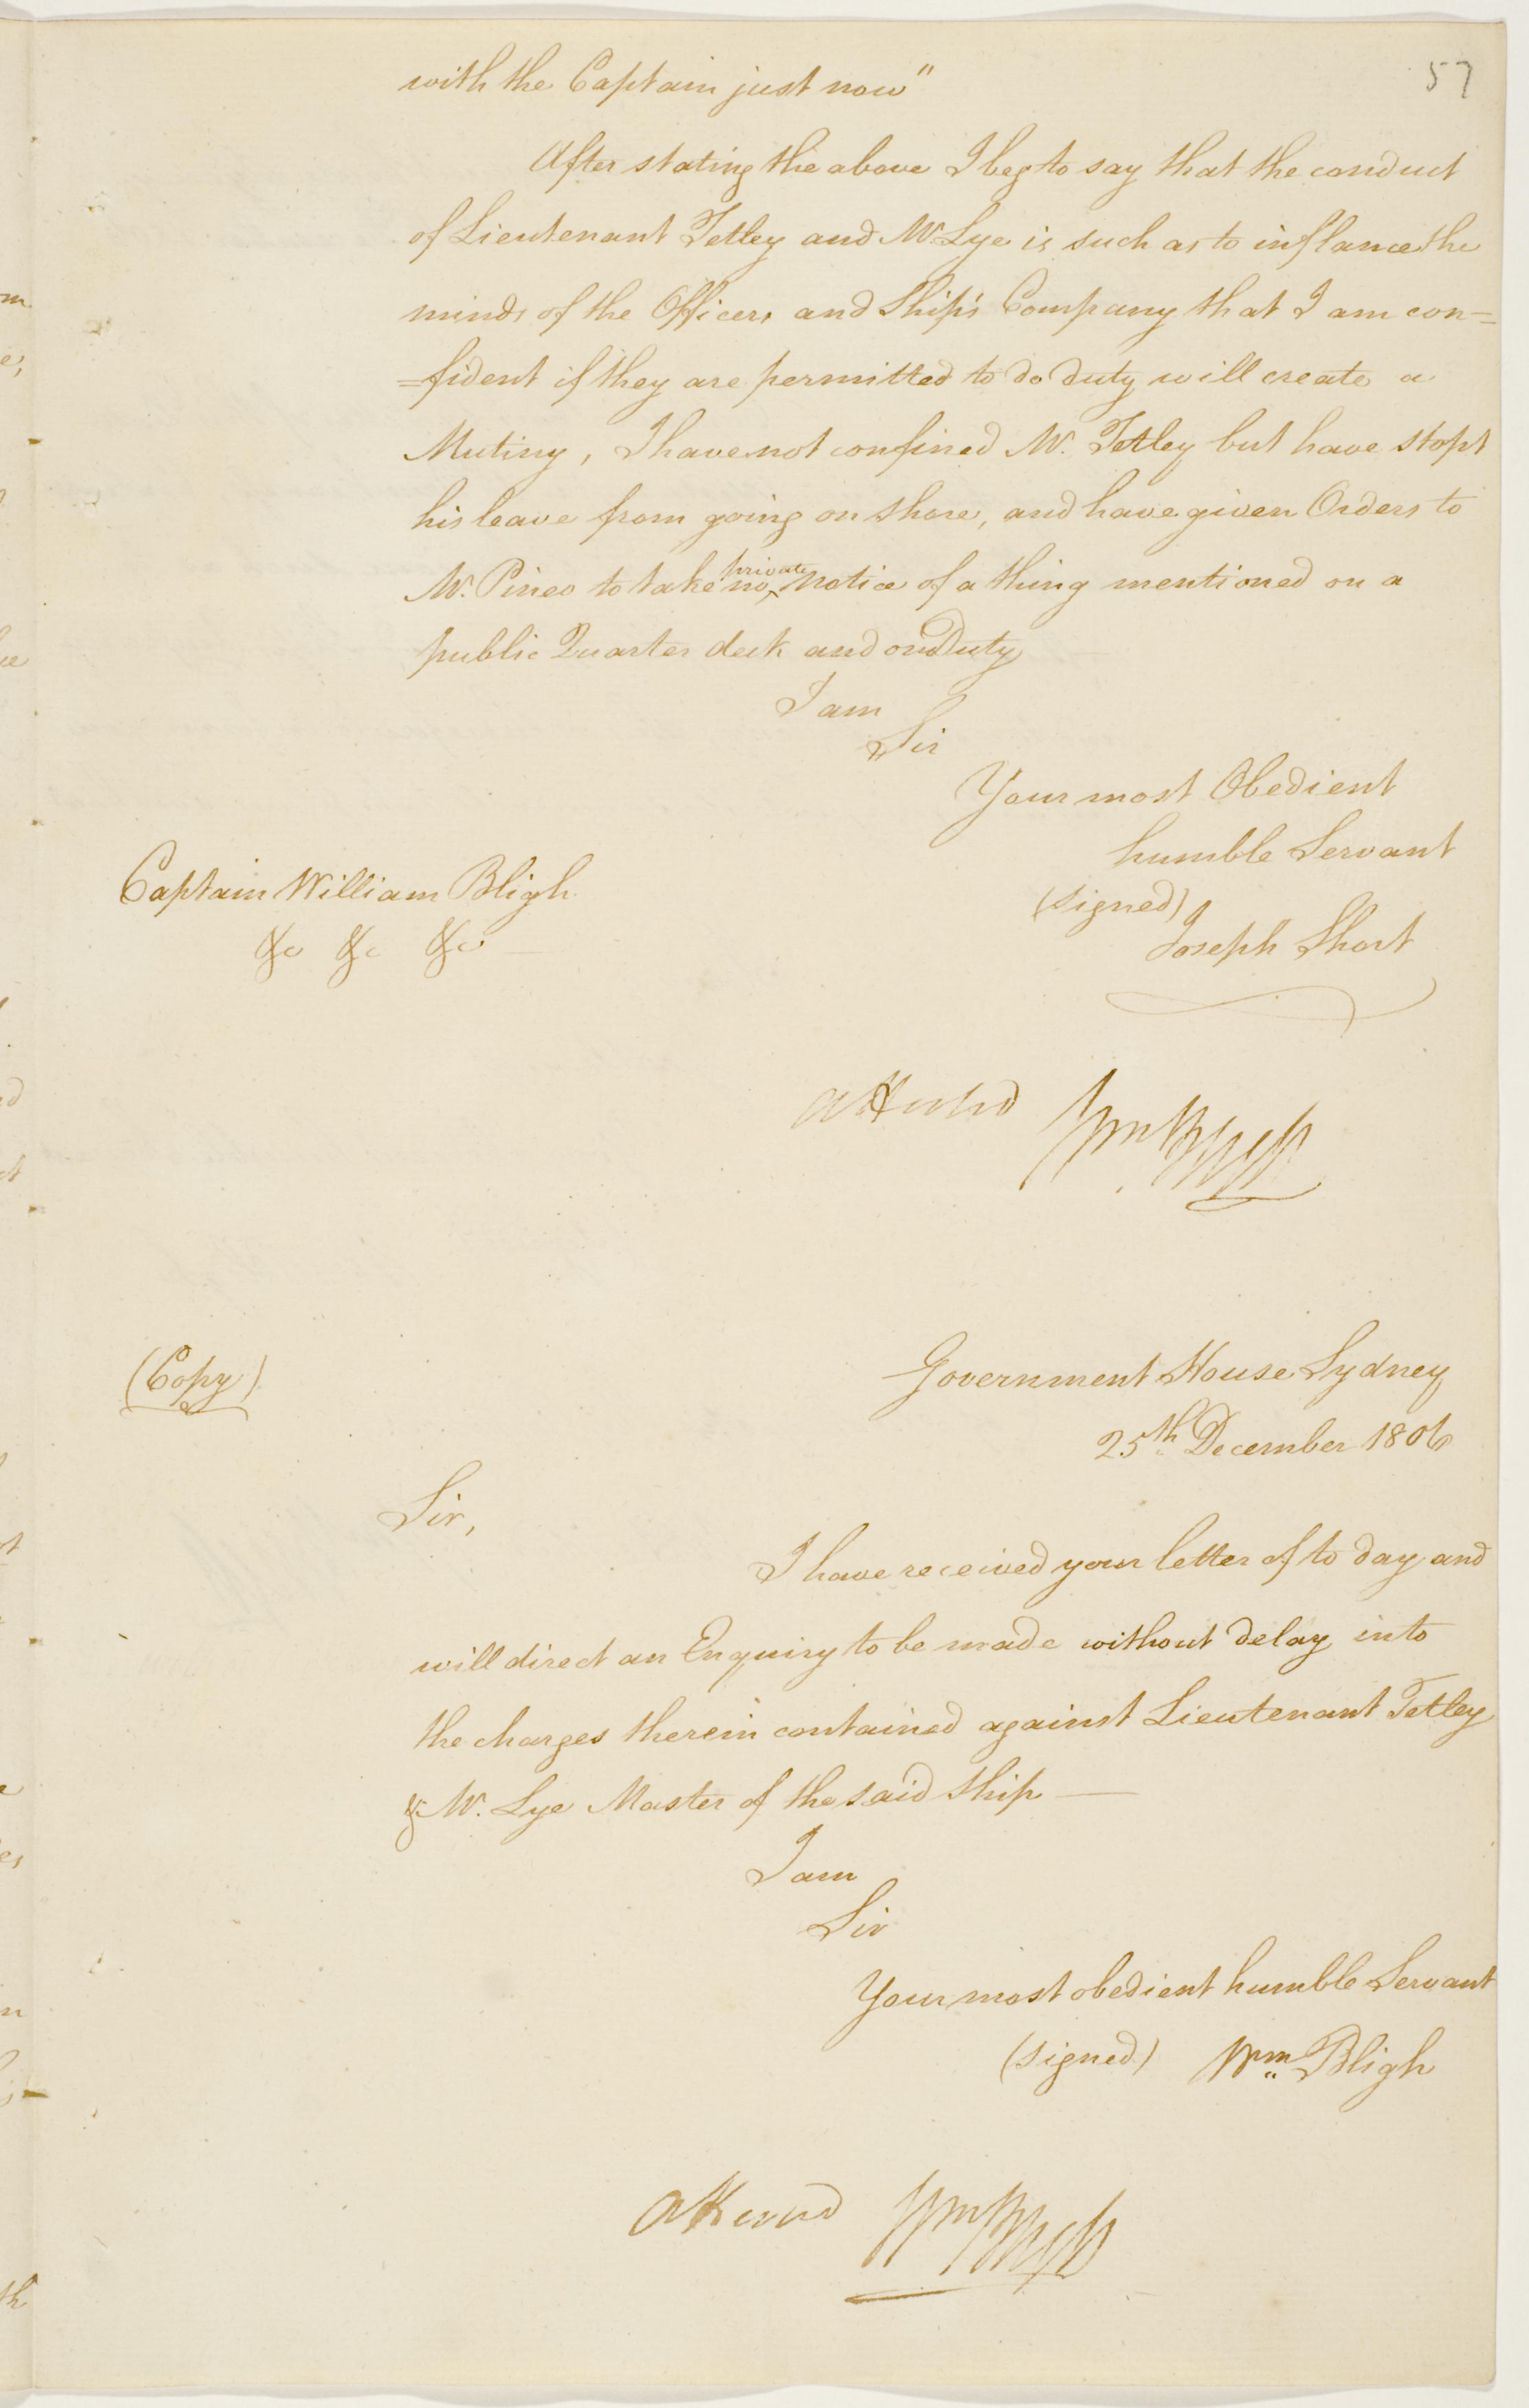 57
with the Captain just now"
After stating the above I beg to say that the conduct
of Lieutenant Tetley and Mr. Lye is such as to inflame the
minds of the Officers and Ship's Company that I am con=
=fident if they are permitted to do duty will create a
Mutiny, I have not confined Mr. Tetley but have stopt
his leave from going on shore, and have given Orders to
Mr. Pineo to take no private notice of a thing mentioned on a
public Quarter deck and on Duty
I am
Sir
Your most Obedient
humble Servant
(signed)
Joseph Short
Captain William Bligh
&c &c &c
attested Wm Bligh
(Copy)
Government House Sydney
25th December 1806
Sir,
I have received your letter of to day and
will direct an Enquiry to be made without delay into
the charges therein contained against Lieutenant Tetley
& Mr. Lye Master of the said Ship —
I am
Sir
Your most obedient humble Servant
(signed) Wm Bligh
attested Wm Bligh